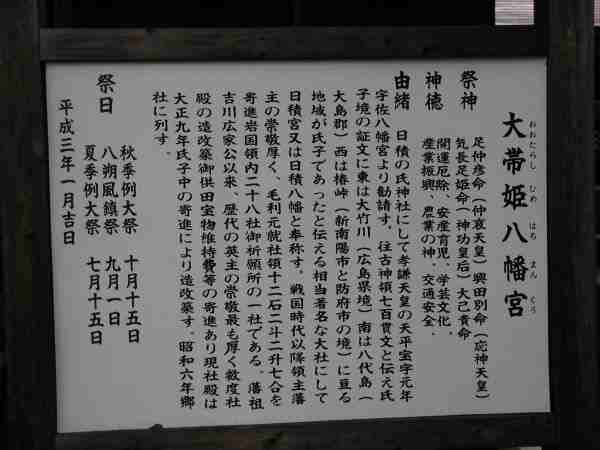 大帯姫八幡宮
おおたらし ひめ はち まん ぐう
祭神 足仲彦命(仲哀天皇)興田別命(応神天皇)
気長足姫命(神功皇后)大己貴命
神徳 開運厄除、安産育児、学芸文化、
産業振興、農業の神、交通安全.
由緒 日積の氏神社にして孝謙天皇の天平宝字元年
宇佐八幡宮より勧請す。往古神領七百貫文と伝え氏
子境の証文に東は大竹川(広島県境)南は八代島(
大島郡)西は椿峠(新南陽市と防府市の境)に亘る
地域が氏子であったと伝える相当著名な大社にして
日積宮又は日積八幡と奉称す。戦国時代以降領主藩
主の崇敬厚く、毛利元就社領十二石二斗二升七合を
寄進岩国領内二十八社御祈願所の一社である、藩祖
吉川広家公以来、歴代の英主の崇敬最も厚く数度社
殿の造改築御供田宝物維持費等の寄進あり現社殿は
大正九年氏子中の寄進により造改築す。昭和六年郷
社に列す。
祭日 秋季例大祭 十月十五日
八朔風鎮祭 九月一日
夏季例大祭 七月十五日
平成三年一月吉日